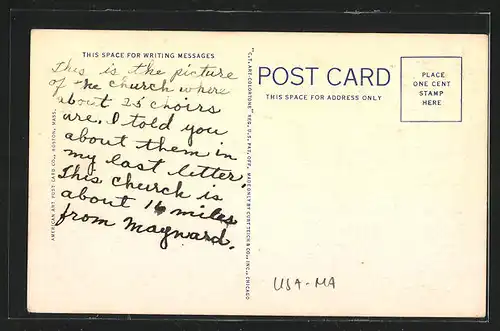 THIS SPACE FOR WRITING MESSAGES
This is the picture
of the church where
about 25 choirs
are. I told you
about them in
my last letter.
This church is
about 16 miles
from Maynard.
AMERICAN ART POST CARD CO., BOSTON, MASS.
"C.T. ART-COLORTONE" REG. U.S. PAT. OFF. MADE ONLY BY CURT TEICH & CO., INC., CHICAGO
POST CARD
THIS SPACE FOR ADDRESS ONLY
PLACE
ONE CENT
STAMP
HERE
USA-MA